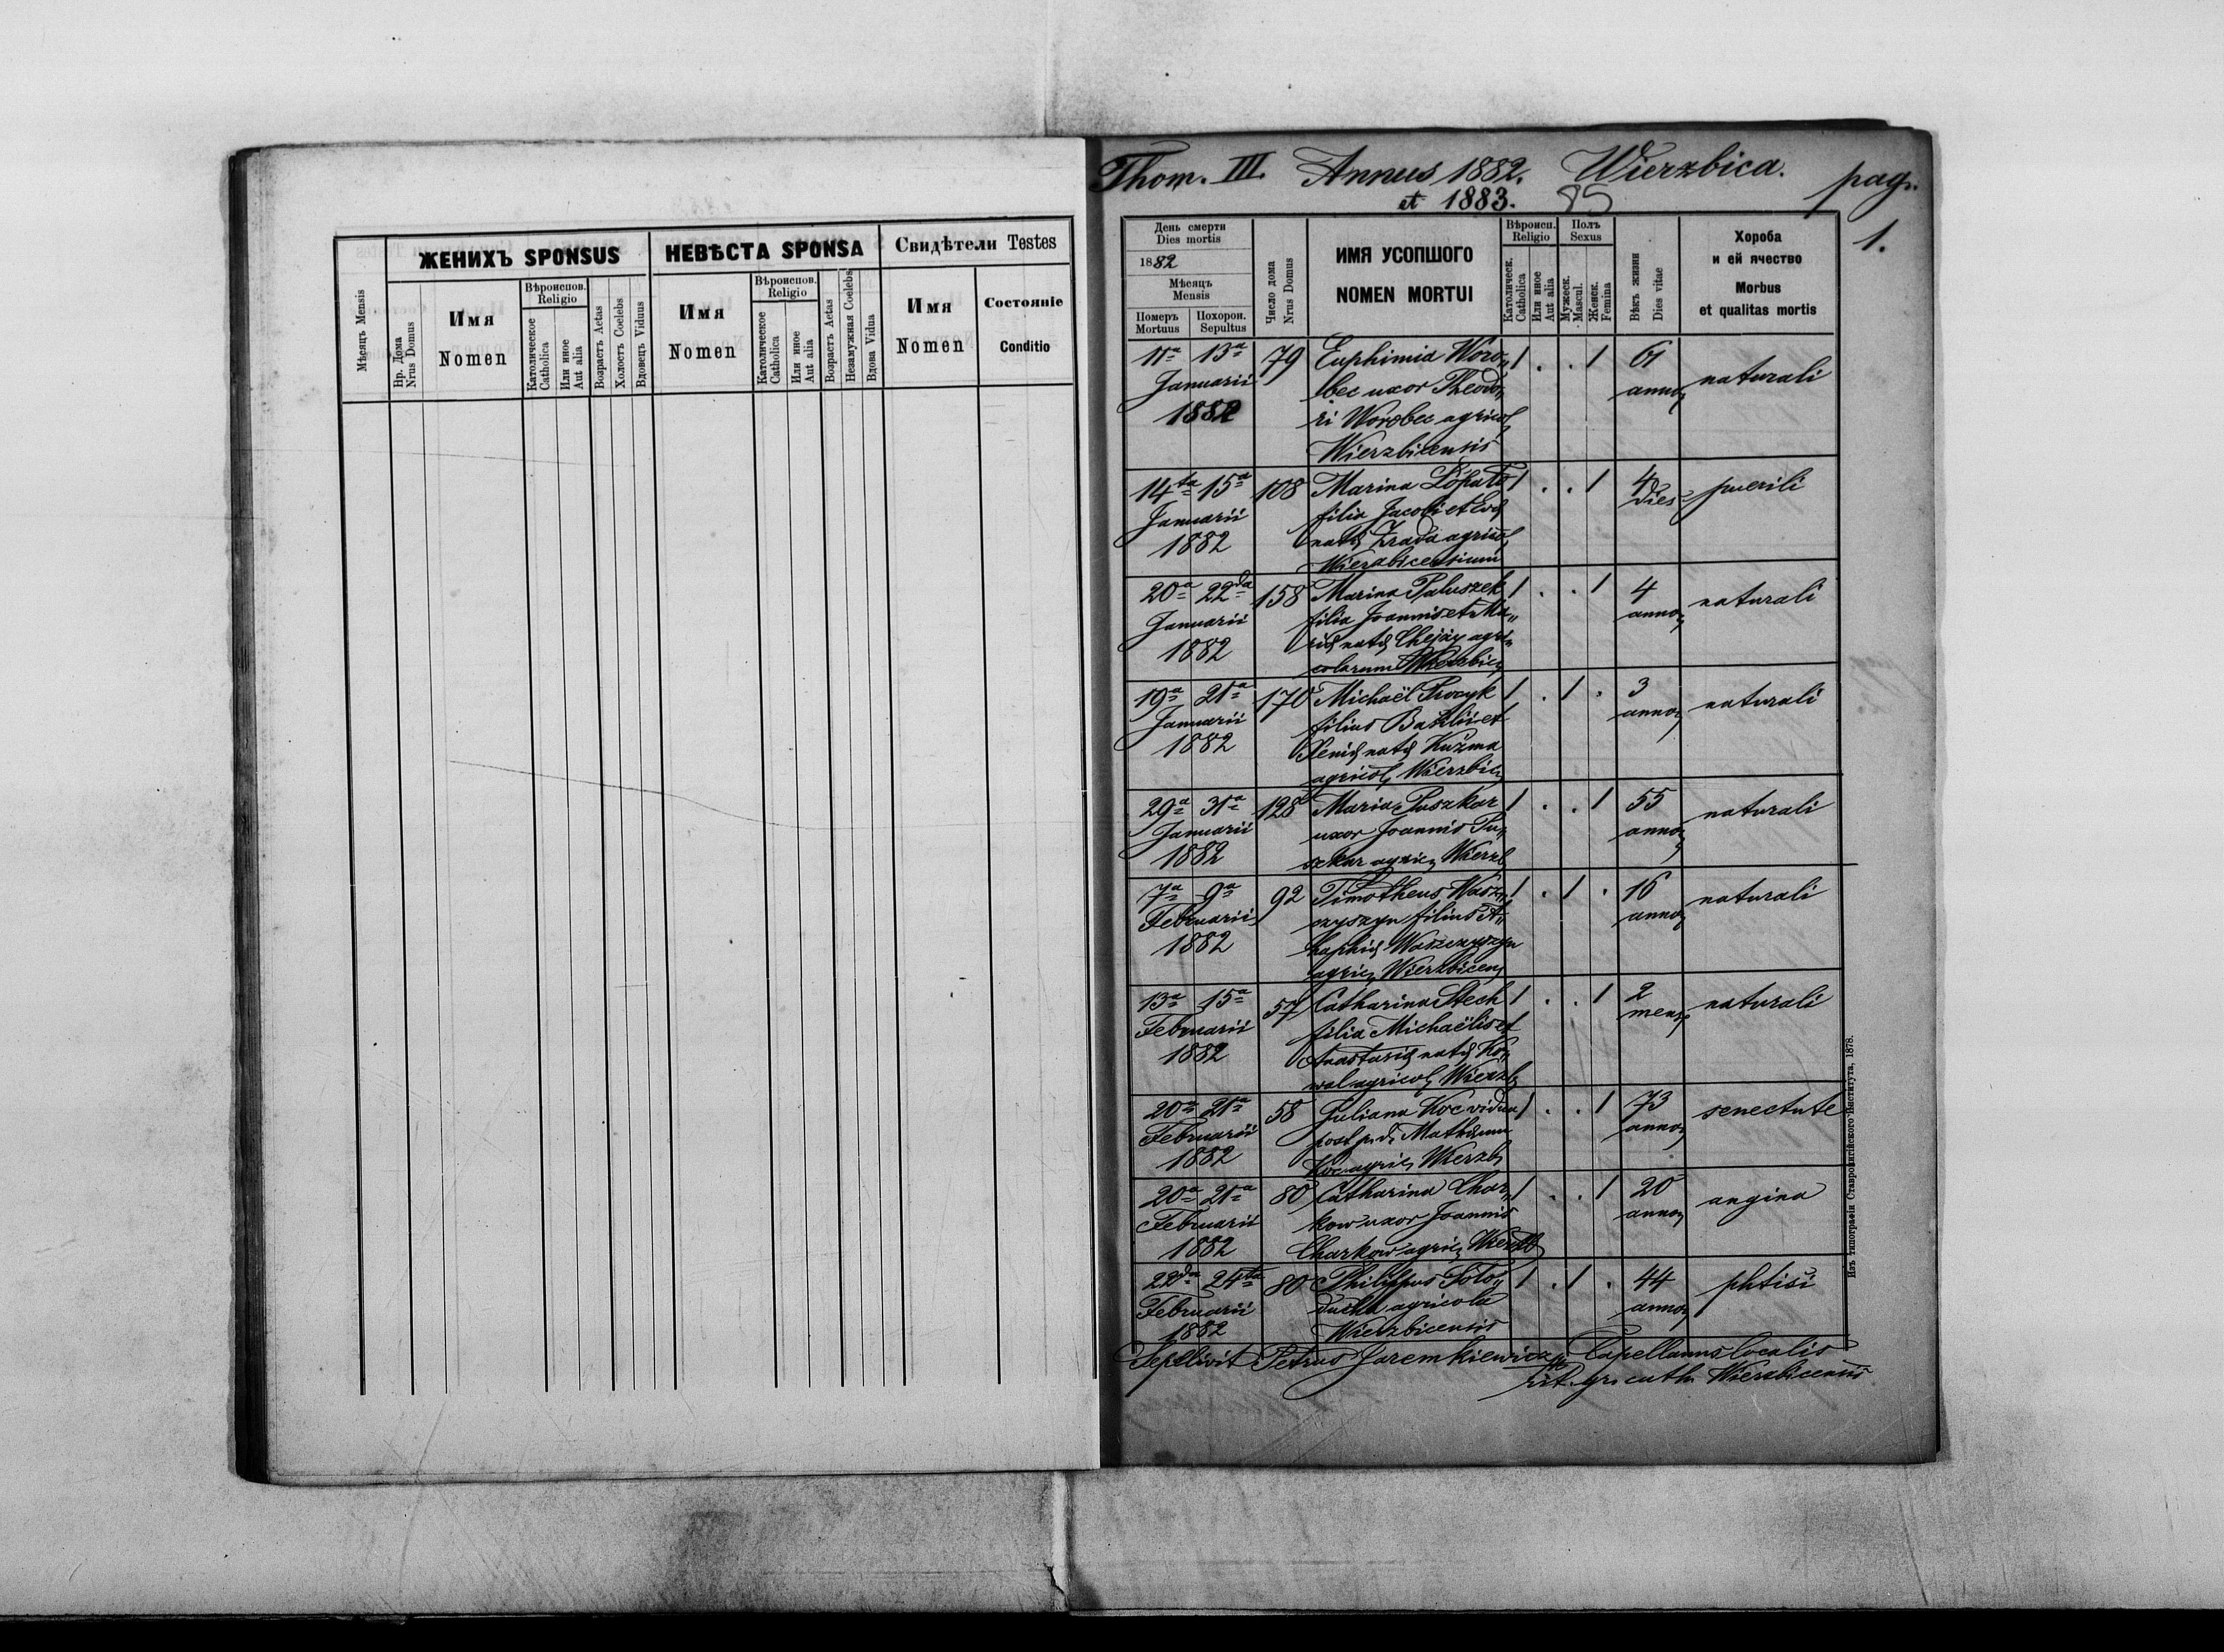 ЖЕНИХЪ SPONSUS
НЕВѢСТА SPONSA
Свидѣтели Testes
Мѣсяцъ Mensis
Нр. Дома
Nrus Domus
Имя
Nomen
Вѣроиспов.
Religio
Католическое
Catholica
Или иное
Aut alia
Возрастъ Aetas
Холостъ Coelebs
Вдовецъ Viduus
Имя
Nomen
Вѣроиспов.
Religio
Католическое
Catholica
Или иное
Aut alia
Возрастъ Aetas
Незамужная Coelebs
Вдова Vidua
Имя
Nomen
Состояніе
Conditio
Thom. III. Annus 1882. Wierzbica. pag.
et 1883. 85
1.
День смерти
Dies mortis
1882
Мѣсяцъ
Mensis
Померъ
Mortuus
Похорон.
Sepultus
Число дома
Nrus Domus
ИМЯ УСОПШОГО
NOMEN MORTUI
Вѣроисп.
Religio
Католическ.
Catholica
Или иное
Aut alia
Полъ
Sexus
Мужеск.
Mascul.
Женск.
Femina
Вѣкъ жизни
Dies vitae
Хороба
и ей ячество
Morbus
et qualitas mortis
11a 13a 79 Euphimia Woro„ 1 . . 1 61
Januarii bec uxor Theodo„ anno naturali
1882 ri Worobec agricol
Wierzbicensis
14ta 15a 108 Marina Łopato 1 . . 1 4 puerili
Januarii filia Jacobi et Evæ dies
1882 natæ Zrada agricol
Wierzbicensium
20a 22da 158 Marina Paluszek 1 . . 1 4 naturali
Januarii filia Joannis et Ma„ anno
1882 riæ natæ agri„
colarum Wierzbic
19a 21a 170 Michaël Procyk 1 . 1 . 3 naturali
Januarii filius Basilii et anno
1882 Xeniæ natæ Kuźma
agricol Wierzbic
29a 31a 128 Maria Puszkar 1 . . 1 55 naturali
Januarii uxor Joannis Pu„ anno
1882 szkar agric Wierzb
7a 9a 92 Timotheus Wasz„ 1 . 1 . 16 naturali
Februarii czyszyn filius A„ anno
1882 haphiæ Waszczyszyn
agric Wierzbicen
13a 15a 57 Catharina Stech 1 . . 1 2 naturali
Februarii filia Michaëlis et mens
1882 Anastasiæ natæ Ko„
wal agricol Wierzb
20a 21a 58 Juliana Koc vidua 1 . . 1 73 senectute
Februarii post p. d. Mathæum anno
1882 Koc agric Wierzb
20a 21a 80 Catharina Char„ 1 . . 1 20 angina
Februarii kow uxor Joannis anno
1882 Charkow agric Wierzb
22da 24ta 80 Philippus Soło„ 1 . 1 . 44 phtisi
Februarii ducha agricola anno
1882 Wierzbicensis
Sepelivit Petrus Jaremkiewicz Capellanus localis
rit. gr. cath. Wierzbicensis
Изъ типографіи Ставропигійского Института, 1878.